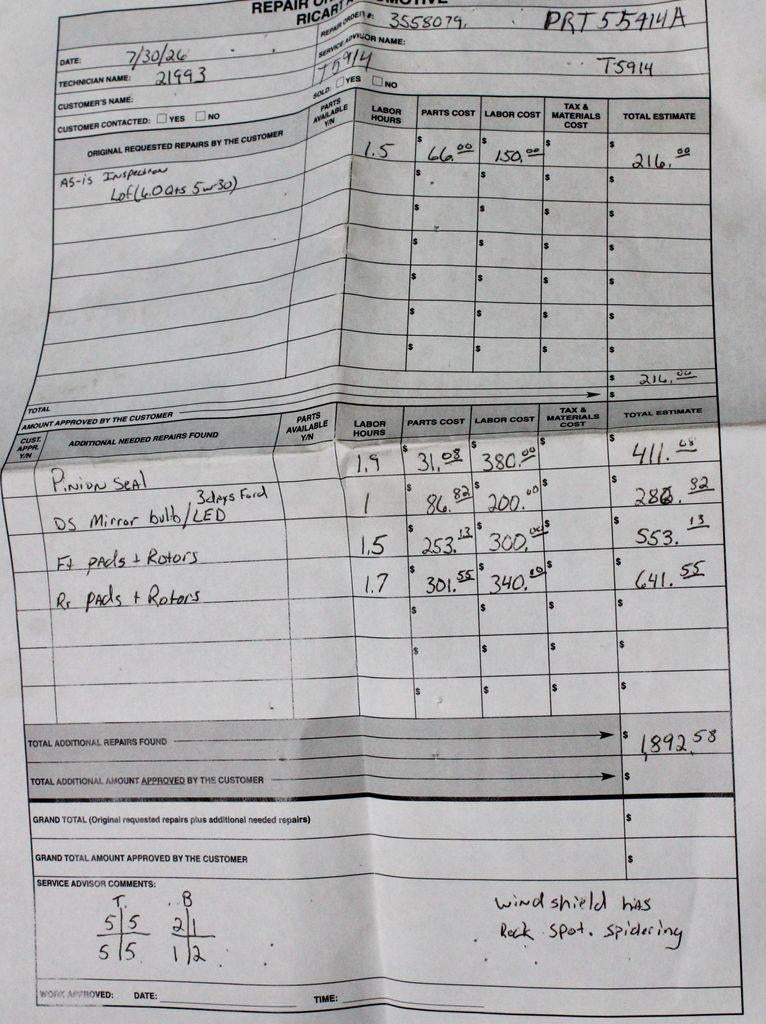 REPAIR
RICART AUTOMOTIVE
REPAIR ORDER #: 3558079. PRT55914A
DATE: 7/30/26
SERVICE ADVISOR NAME:
T5914 T5914
TECHNICIAN NAME: 21993
SOLD: YES NO
CUSTOMER'S NAME:
CUSTOMER CONTACTED: YES NO
ORIGINAL REQUESTED REPAIRS BY THE CUSTOMER PARTS AVAILABLE Y/N LABOR HOURS PARTS COST LABOR COST TAX & MATERIALS COST TOTAL ESTIMATE
AS-is Inspection 1.5 $ 66.00 $ 150.00 $ $ 216.00
Lof (6.0 Qts 5w-30) $ $ $ $
$ $ $ $
$ $ $ $
$ $ $ $
$ $ $ $
$ $ $ $
TOTAL $ 216.00
AMOUNT APPROVED BY THE CUSTOMER $
CUST. APPR. Y/N ADDITIONAL NEEDED REPAIRS FOUND PARTS AVAILABLE Y/N LABOR HOURS PARTS COST LABOR COST TAX & MATERIALS COST TOTAL ESTIMATE
Pinion Seal 1.9 $ 31.08 $ 380.00 $ $ 411.08
DS Mirror bulb/LED 3days Ford 1 $ 86.82 $ 200.00 $ $ 286.82
Ft pads + Rotors 1.5 $ 253.13 $ 300.00 $ $ 553.13
Rr pads + Rotors 1.7 $ 301.55 $ 340.00 $ $ 641.55
$ $ $ $
$ $ $ $
$ $ $ $
TOTAL ADDITIONAL REPAIRS FOUND $ 1,892.58
TOTAL ADDITIONAL AMOUNT APPROVED BY THE CUSTOMER $
GRAND TOTAL (Original requested repairs plus additional needed repairs) $
GRAND TOTAL AMOUNT APPROVED BY THE CUSTOMER $
SERVICE ADVISOR COMMENTS:
T. B
5 5 2 1
5 5 1 2
windshield has
Rock spot. spidering
WORK APPROVED: DATE: TIME: